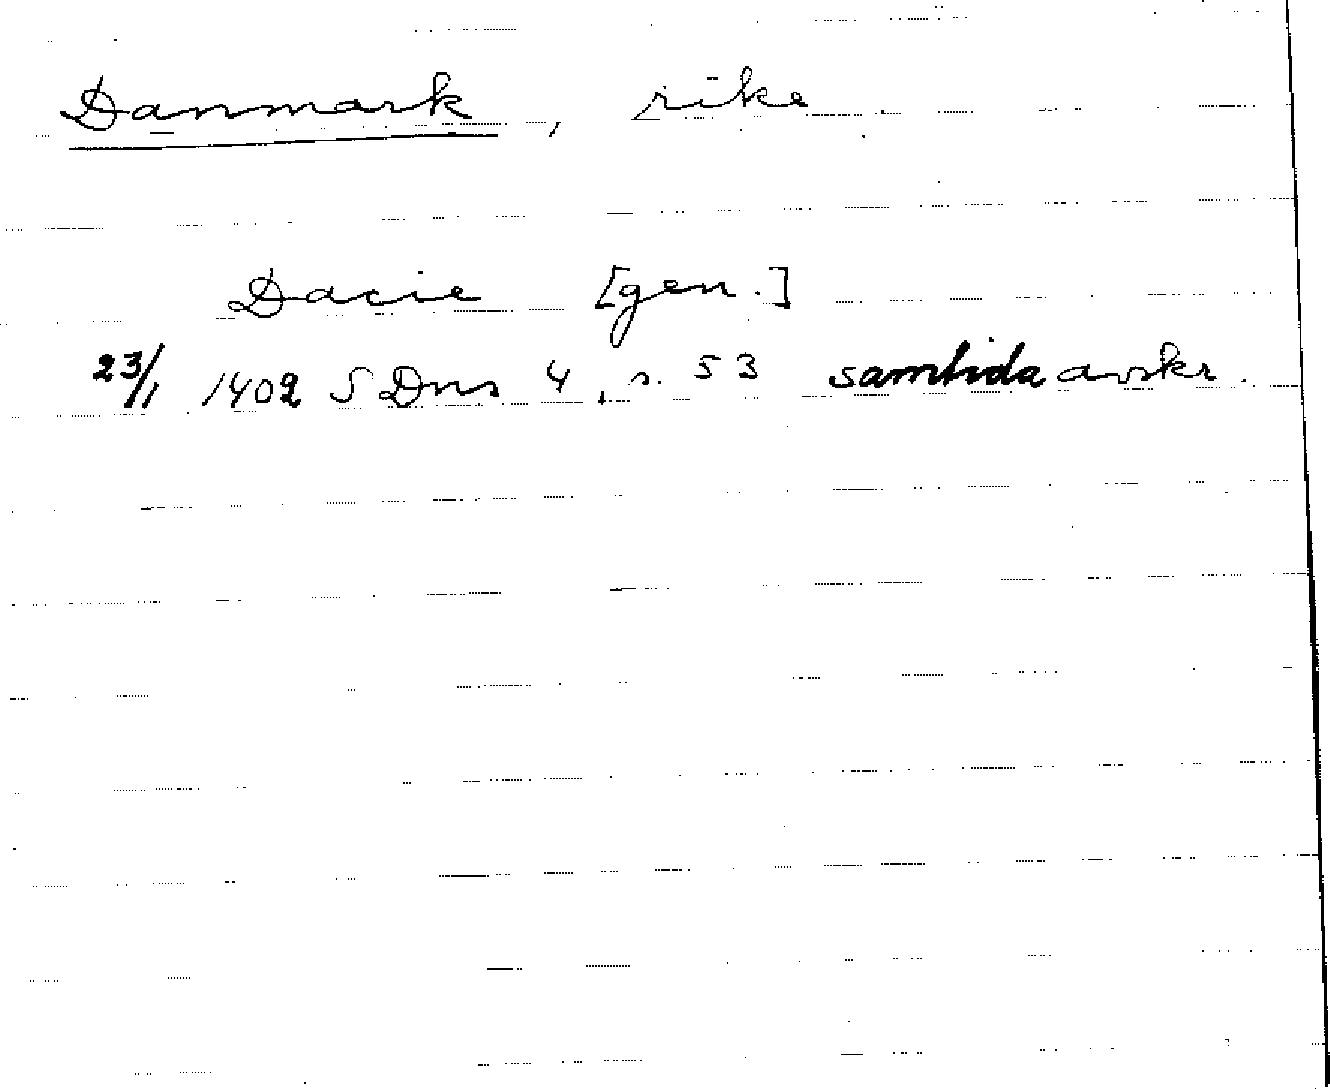 Danmark, rike
Dacie [gen.]
23/1 1402 SDns 4, s. 53 samtida avskr.